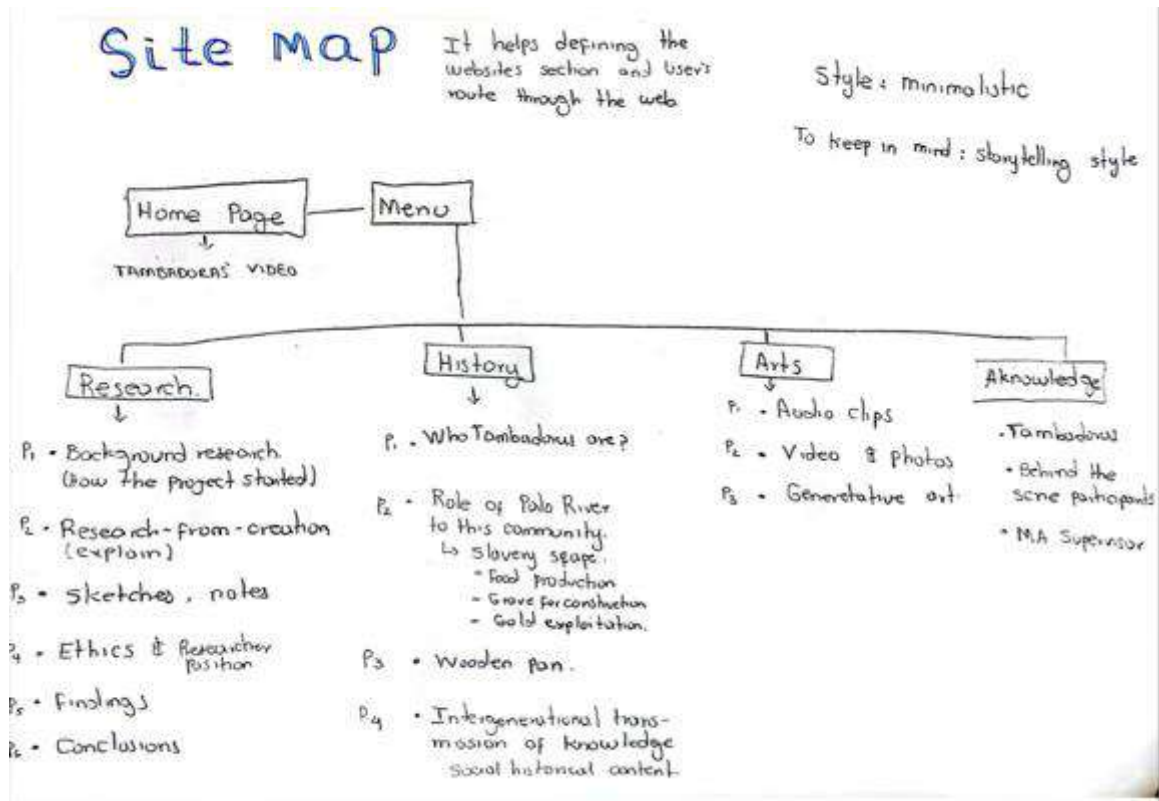 Site map
It helps defining the
websites section and user's
route through the web
Style: minimalistic
To keep in mind: storytelling style
Home Page
Menu
TAMBADORAS' VIDEO
Research.
P1 • Background research.
(how the project started)
P2 • Research-from-creation
(explain)
P3 • Sketches, notes
P4 • Ethics & Researcher
Position
P5 • Findings
P6 • Conclusions
History
P1 • Who Tambadoras are?
P2 • Role of Palo River
to this community.
↳ Slavery scape.
• Food production
- Gravel for construction
- Gold exploitation.
P3 • Wooden pan.
P4 • Intergenerational trans-
mission of knowledge
Social historical content
Arts
P1 • Audio clips
P2 • Video & photos
P3 • Generetative art
Aknowledge
• Tambadoras
• Behind the
scne participants
• MA Supervisor